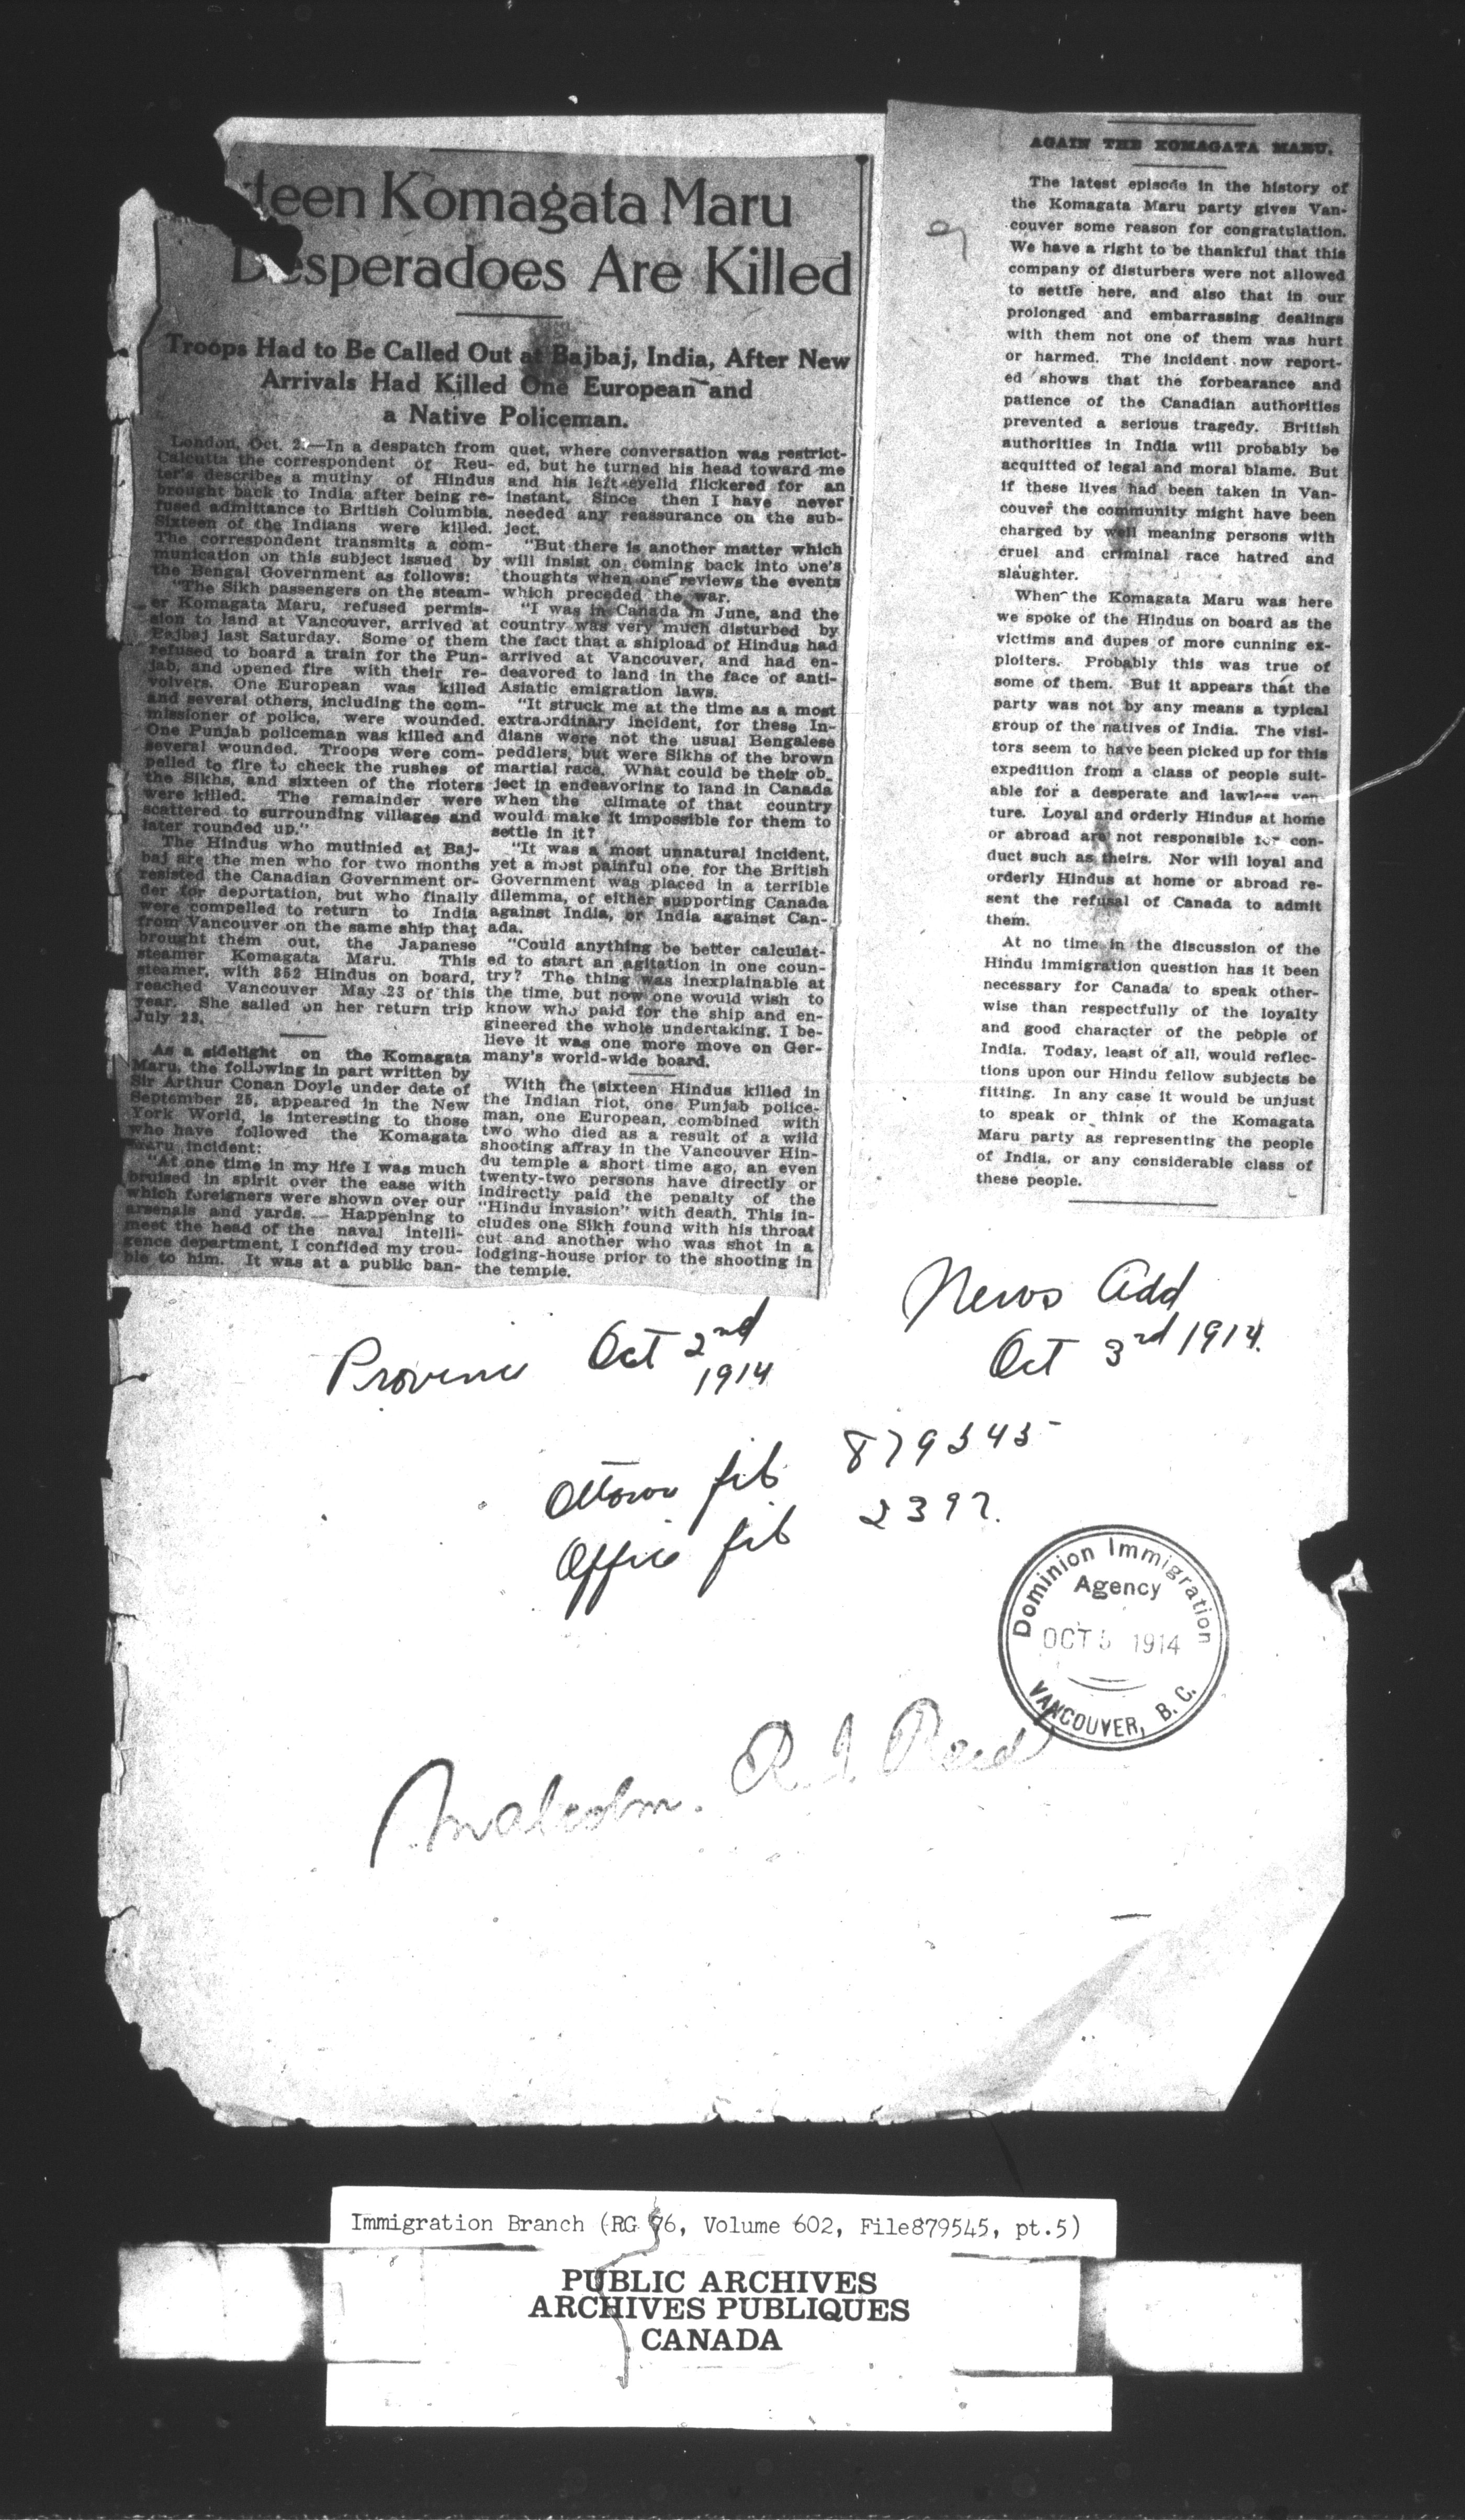 teen Komagata Maru
Desperadoes Are Killed
Troops Had to Be Called Out at Bajbaj, India, After New
Arrivals Had Killed One European and
a Native Policeman.
London, Oct. 2.—In a despatch from
Calcutta the correspondent of Reu-
ter's describes a mutiny of Hindus
brought back to India after being re-
fused admittance to British Columbia.
Sixteen of the Indians were killed.
The correspondent transmits a com-
munication on this subject issued by
the Bengal Government as follows:
"The Sikh passengers on the steam-
er Komagata Maru, refused permis-
sion to land at Vancouver, arrived at
Bajbaj last Saturday. Some of them
refused to board a train for the Pun-
jab, and opened fire with their re-
volvers. One European was killed
and several others, including the com-
missioner of police, were wounded.
One Punjab policeman was killed and
several wounded. Troops were com-
pelled to fire to check the rushes of
the Sikhs, and sixteen of the rioters
were killed. The remainder were
scattered to surrounding villages and
later rounded up."
The Hindus who mutinied at Baj-
baj are the men who for two months
resisted the Canadian Government or-
der for deportation, but who finally
were compelled to return to India
from Vancouver on the same ship that
brought them out, the Japanese
steamer Komagata Maru. This
steamer, with 352 Hindus on board,
reached Vancouver May 23 of this
year. She sailed on her return trip
July 23.
As a sidelight on the Komagata
Maru, the following in part written by
Sir Arthur Conan Doyle under date of
September 25, appeared in the New
York World, is interesting to those
who have followed the Komagata
Maru incident:
"At one time in my life I was much
bruised in spirit over the ease with
which foreigners were shown over our
arsenals and yards.— Happening to
meet the head of the naval intelli-
gence department, I confided my trou-
ble to him. It was at a public ban-
quet, where conversation was restrict-
ed, but he turned his head toward me
and his left eyelid flickered for an
instant. Since then I have never
needed any reassurance on the sub-
ject.
"But there is another matter which
will insist on coming back into one's
thoughts when one reviews the events
which preceded the war.
"I was in Canada in June, and the
country was very much disturbed by
the fact that a shipload of Hindus had
arrived at Vancouver, and had en-
deavored to land in the face of anti-
Asiatic emigration laws.
"It struck me at the time as a most
extraordinary incident, for these In-
dians were not the usual Bengalese
peddlers, but were Sikhs of the brown
martial race. What could be their ob-
ject in endeavoring to land in Canada
when the climate of that country
would make it impossible for them to
settle in it?
"It was a most unnatural incident,
yet a most painful one, for the British
Government was placed in a terrible
dilemma, of either supporting Canada
against India, or India against Can-
ada.
"Could anything be better calculat-
ed to start an agitation in one coun-
try? The thing was inexplainable at
the time, but now one would wish to
know who paid for the ship and en-
gineered the whole undertaking. I be-
lieve it was one more move on Ger-
many's world-wide board.
With the sixteen Hindus killed in
the Indian riot, one Punjab police-
man, one European, combined with
two who died as a result of a wild
shooting affray in the Vancouver Hin-
du temple a short time ago, an even
twenty-two persons have directly or
indirectly paid the penalty of the
"Hindu invasion" with death. This in-
cludes one Sikh found with his throat
cut and another who was shot in a
lodging-house prior to the shooting in
the temple.
AGAIN THE KOMAGATA MARU.
The latest episode in the history of
the Komagata Maru party gives Van-
couver some reason for congratulation.
We have a right to be thankful that this
company of disturbers were not allowed
to settle here, and also that in our
prolonged and embarrassing dealings
with them not one of them was hurt
or harmed. The incident now report-
ed shows that the forbearance and
patience of the Canadian authorities
prevented a serious tragedy. British
authorities in India will probably be
acquitted of legal and moral blame. But
if these lives had been taken in Van-
couver the community might have been
charged by well meaning persons with
cruel and criminal race hatred and
slaughter.
When the Komagata Maru was here
we spoke of the Hindus on board as the
victims and dupes of more cunning ex-
ploiters. Probably this was true of
some of them. But it appears that the
party was not by any means a typical
group of the natives of India. The visi-
tors seem to have been picked up for this
expedition from a class of people suit-
able for a desperate and lawless ven-
ture. Loyal and orderly Hindus at home
or abroad are not responsible for con-
duct such as theirs. Nor will loyal and
orderly Hindus at home or abroad re-
sent the refusal of Canada to admit
them.
At no time in the discussion of the
Hindu immigration question has it been
necessary for Canada to speak other-
wise than respectfully of the loyalty
and good character of the people of
India. Today, least of all, would reflec-
tions upon our Hindu fellow subjects be
fitting. In any case it would be unjust
to speak or think of the Komagata
Maru party as representing the people
of India, or any considerable class of
these people.
Province Oct 2nd
1914
News Add
Oct 3rd 1914.
Ottawa file 879545
Office file 2397.
Dominion Immigration
Agency
OCT 5 1914
VANCOUVER, B. C.
Malcolm. R. J. Reid
Immigration Branch (RG 76, Volume 602, File879545, pt.5)
PUBLIC ARCHIVES
ARCHIVES PUBLIQUES
CANADA